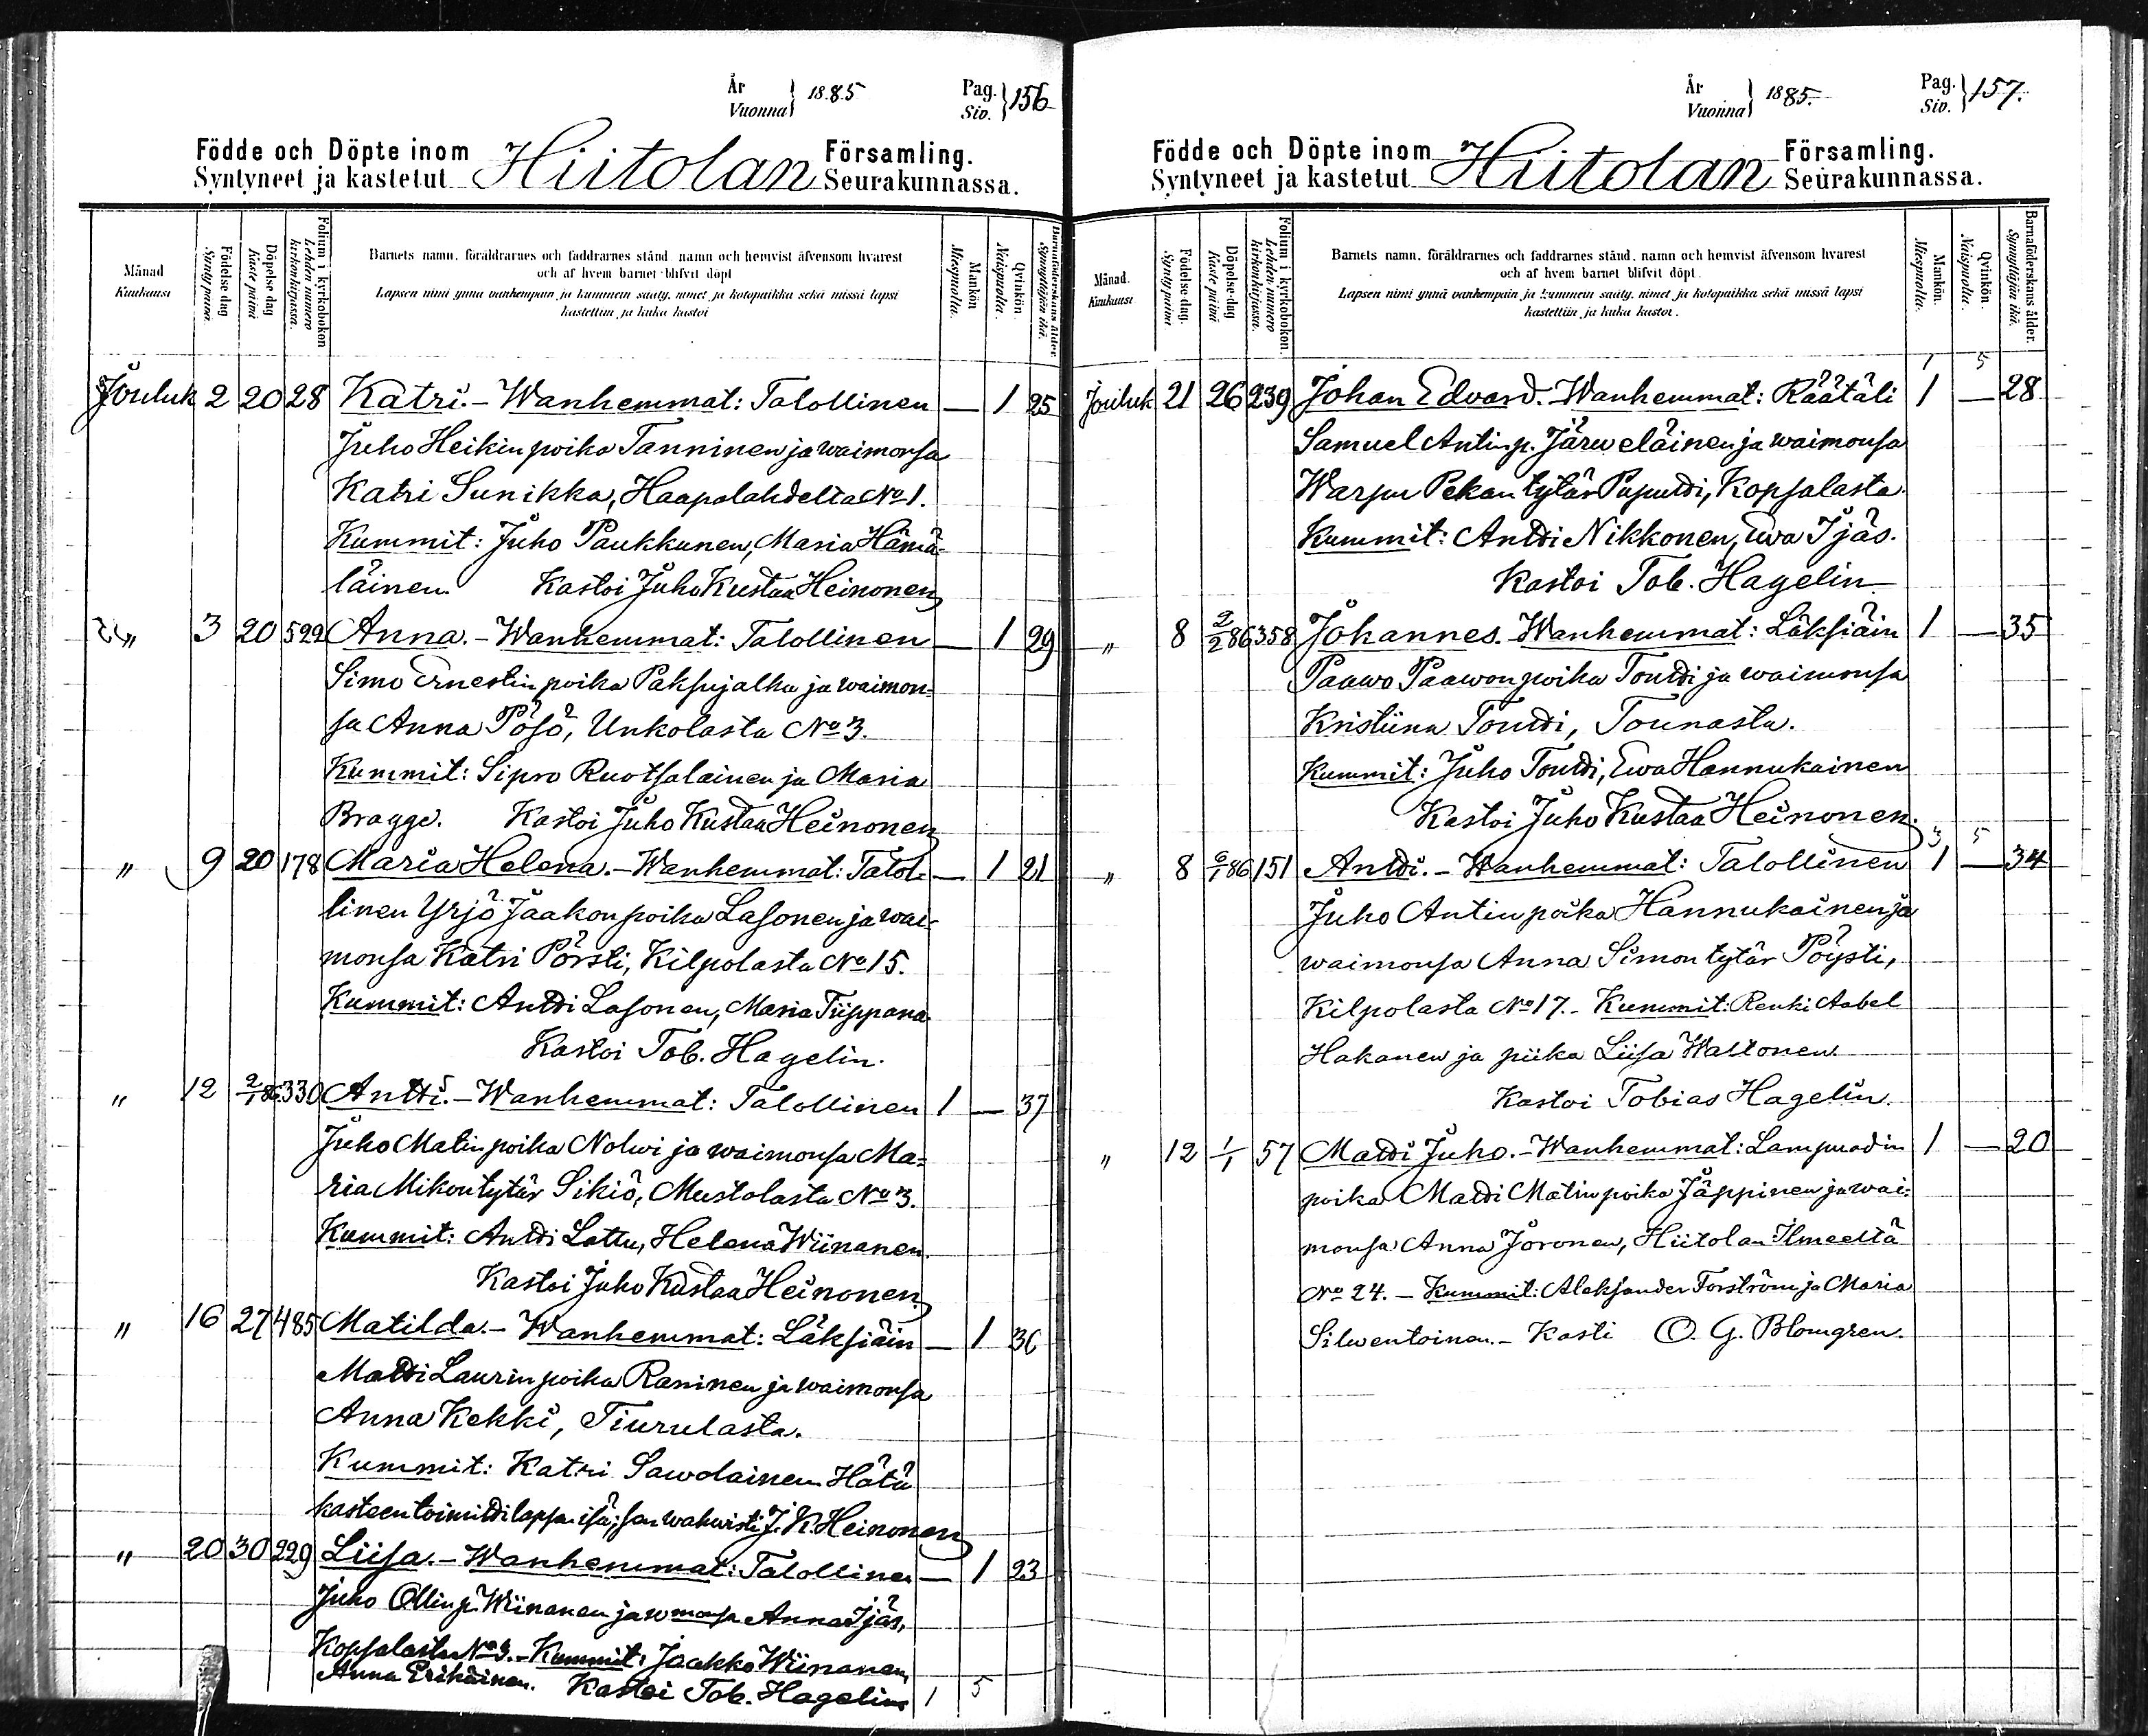 År
Vuonna} 1885
Pag.
Siv.} 156
Födde och Döpte inom Hiitolan Församling.
Syntyneet ja kastetut Seurakunnassa.
Månad
Kuukausi
Födelse dag
Synty päivä.
Döpelse dag
Kaste päivä
Folium i kyrkobokon
Lehden numero
kirkonkirjassa.
Barnets namn, föräldrarnes och faddrarnes stånd, namn och hemvist äfvensom hvarest
och af hvem barnet blifvit döpt
Lapsen nimi ynnä vanhempain ja kummein sääty, nimet ja kotopaikka sekä missä lapsi
kastettiin ja kuka kastoi
Mankön
Miespuolta.
Qvinkön
Naispuolta.
Barnaföderskans ålder.
Synnyttäjän ikä.
Jouluk 2 20 28 Katri. - Wanhemmat: Talollinen — 1 25
Juho Heikin poika Tanninen ja waimonsa
Katri Sunikka, Haapalahdelta No 1.
Kummit: Juho Paukkunen, Maria Hämä-
läinen. Kastoi Juho Kustaa Heinonen
" 3 20 522 Anna. - Wanhemmat: Talollinen — 1 29
Simo Ernestin poika Paksujalka ja waimon-
sa Anna Pösö, Unkolasta No 3.
Kummit: Sipro Ruotsalainen ja Maria
Bragge. Kastoi Juho Kustaa Heinonen
" 9 20 178 Maria Helena. - Wanhemmat: Talol- — 1 21
linen Yrjö Jaakon poika Lasonen ja wai-
monsa Katri Pörsti, Kilpolasta No 15.
Kummit: Antti Lasonen, Maria Tiippana
Kastoi Tob. Hagelin.
" 12 2/1 86. 330 Antti. - Wanhemmat: Talollinen 1 — 37
Juho Matin poika Nolwi ja waimonsa Ma-
ria Mikontytär Sikiö, Mustolasta No 3.
Kummit: Antti Lattu, Helena Wiinanen.
Kastoi Juho Kustaa Heinonen
" 16 27 485 Matilda. - Wanhemmat: Läksiäin — 1 36
Matti Laurin poika Raninen ja waimonsa
Anna Kekki, Tiurulasta.
Kummit: Katri Sawolainen Hätä
kasteen toimitti lapsen isä; sen wahwisti J. K. Heinonen
" 20 30 229 Liisa. - Wanhemmat: Talollinen — 1 23
Juho Ollin p. Wiinanen ja wmonsa Anna Ijäs,
Kopsalasta No 3. - Kummit: Jaakko Wiinanen,
Anna Erikäinen. Kastoi Tob. Hagelin 1 5
År
Vuonna} 1885.
Pag.
Siv.} 157.
Födde och Döpte inom Hiitolan Församling.
Syntyneet ja kastetut Seurakunnassa.
Månad.
Kuukausi
Födelse-dag.
Synty päivä
Döpelse-dag
Kaste päivä
Folium i kyrkobokon.
Lehden numero
kirkonkirjassa.
Barnets namn, föräldrarnes och faddrarnes stånd, namn och hemvist äfvensom hvarest
och af hvem barnet blifvit döpt.
Lapsen nimi ynnä vanhempain ja kummein sääty, nimet ja kotopaikka sekä missä lapsi
kastettiin ja kuka kastoi.
Mankön.
Miespuolta.
Qvinkön.
Naispuolta.
Barnaföderskans ålder.
Synnyttäjän ikä.
1 5
Jouluk 21 26 239 Johan Edvard. Wanhemmat: Räätäli 1 — 28
Samuel Antinp. Järweläinen ja waimonsa
Warpu Pekan tytär Puputti, Kopsalasta.
Kummit: Antti Nikkonen, Ewa Ijäs.
Kastoi Tob. Hagelin
" 8 2/2 86 358 Johannes. Wanhemmat: Läksiäin 1 — 35
Paawo Paawonpoika Toutti ja waimonsa
Kristiina Toutti, Tounasta.
Kummit: Juho Toutti, Ewa Hannukainen
Kastoi Juho Kustaa Heinonen.
3 5
" 8 6/1 86 151 Antti. - Wanhemmat: Talollinen 1 — 34
Juho Antin poika Hannukainen ja
waimonsa Anna Simon tytär Pöysti,
Kilpolasta No 17. - Kummit: Renki Aabel
Hakanen ja piika Liisa Waltonen.
Kastoi Tobias Hagelin.
" 12 1/1 57 Matti Juho. - Wanhemmat: Lampuodin 1 — 20
poika Matti Matin poika Jäppinen ja wai-
monsa Anna Joronen, Hiitolan Ilmeeltä
No 24. - Kummit: Aleksander Forström ja Maria
Silwentoinen. - Kasti O. G. Blomgren.